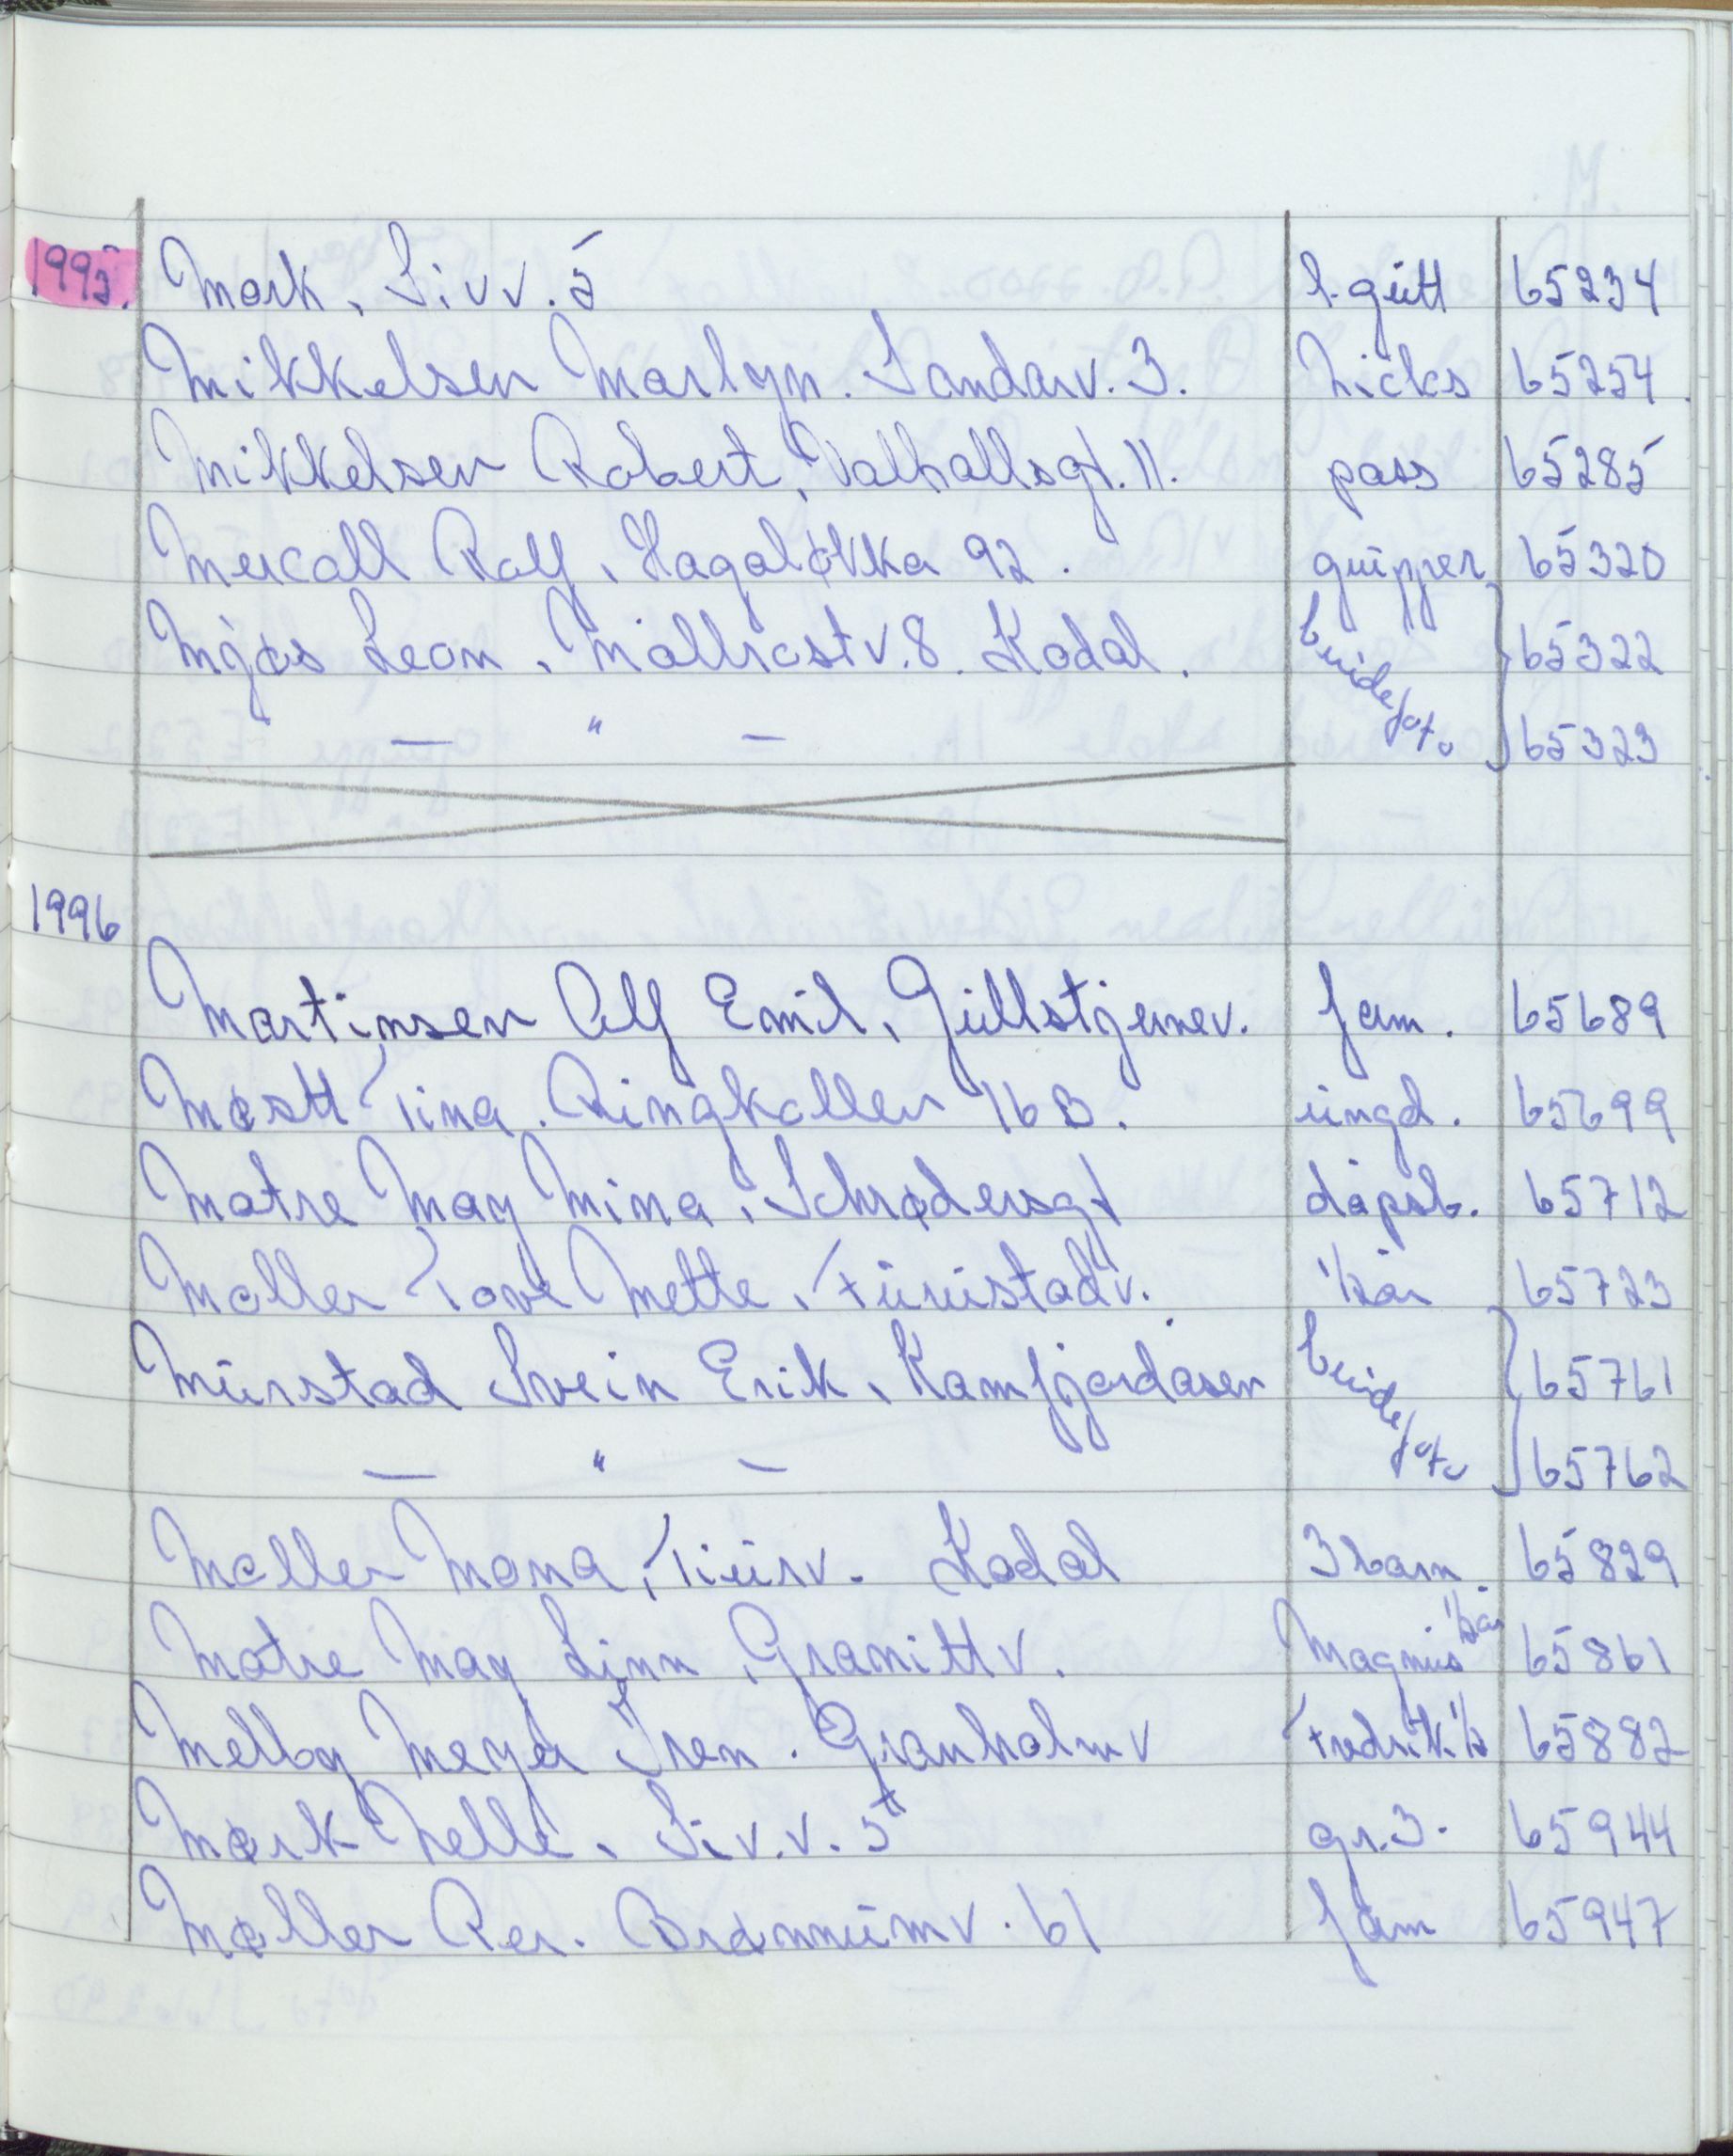 1995. Mørk, Siv v. 5 1. gutt 65234
Mikkelsen Marlyn. Sandarv. 3. Nicks 65254
Mikkelsen Robert, Valhallsgt. 11. pass 65285
Mercoll Rolf, Hagaløkka 92. grupper 65320
Mjøs Leon, Mølleråstv. 8. Kodal. brudefoto 65322
— " — 65323
1996
Martinsen Alf Emil, Gullstjernev. fam. 65689
Møstl Tina. Ringkollen 16 B. ungd. 65699
Matre May Mina, Schrødersgt dåpsb. 65712
Møller Tove Mette, Furustadv. 1/2 år 65723
Murstad Svein Erik, Kamfjordåsen brudefoto 65761
— " — 65762
Møller Mona, Tiurv. Kodal 3 barn. 65829
Matre May Linn, Granittv. Magnus 1/2 år 65861
Melby Meyer Iren. Granholmv Fredrik 1/2 65882
Mørk Helle, Siv. v. 5 gr. 3. 65944
Møller Per. Brønnumv. 61 fam 65947